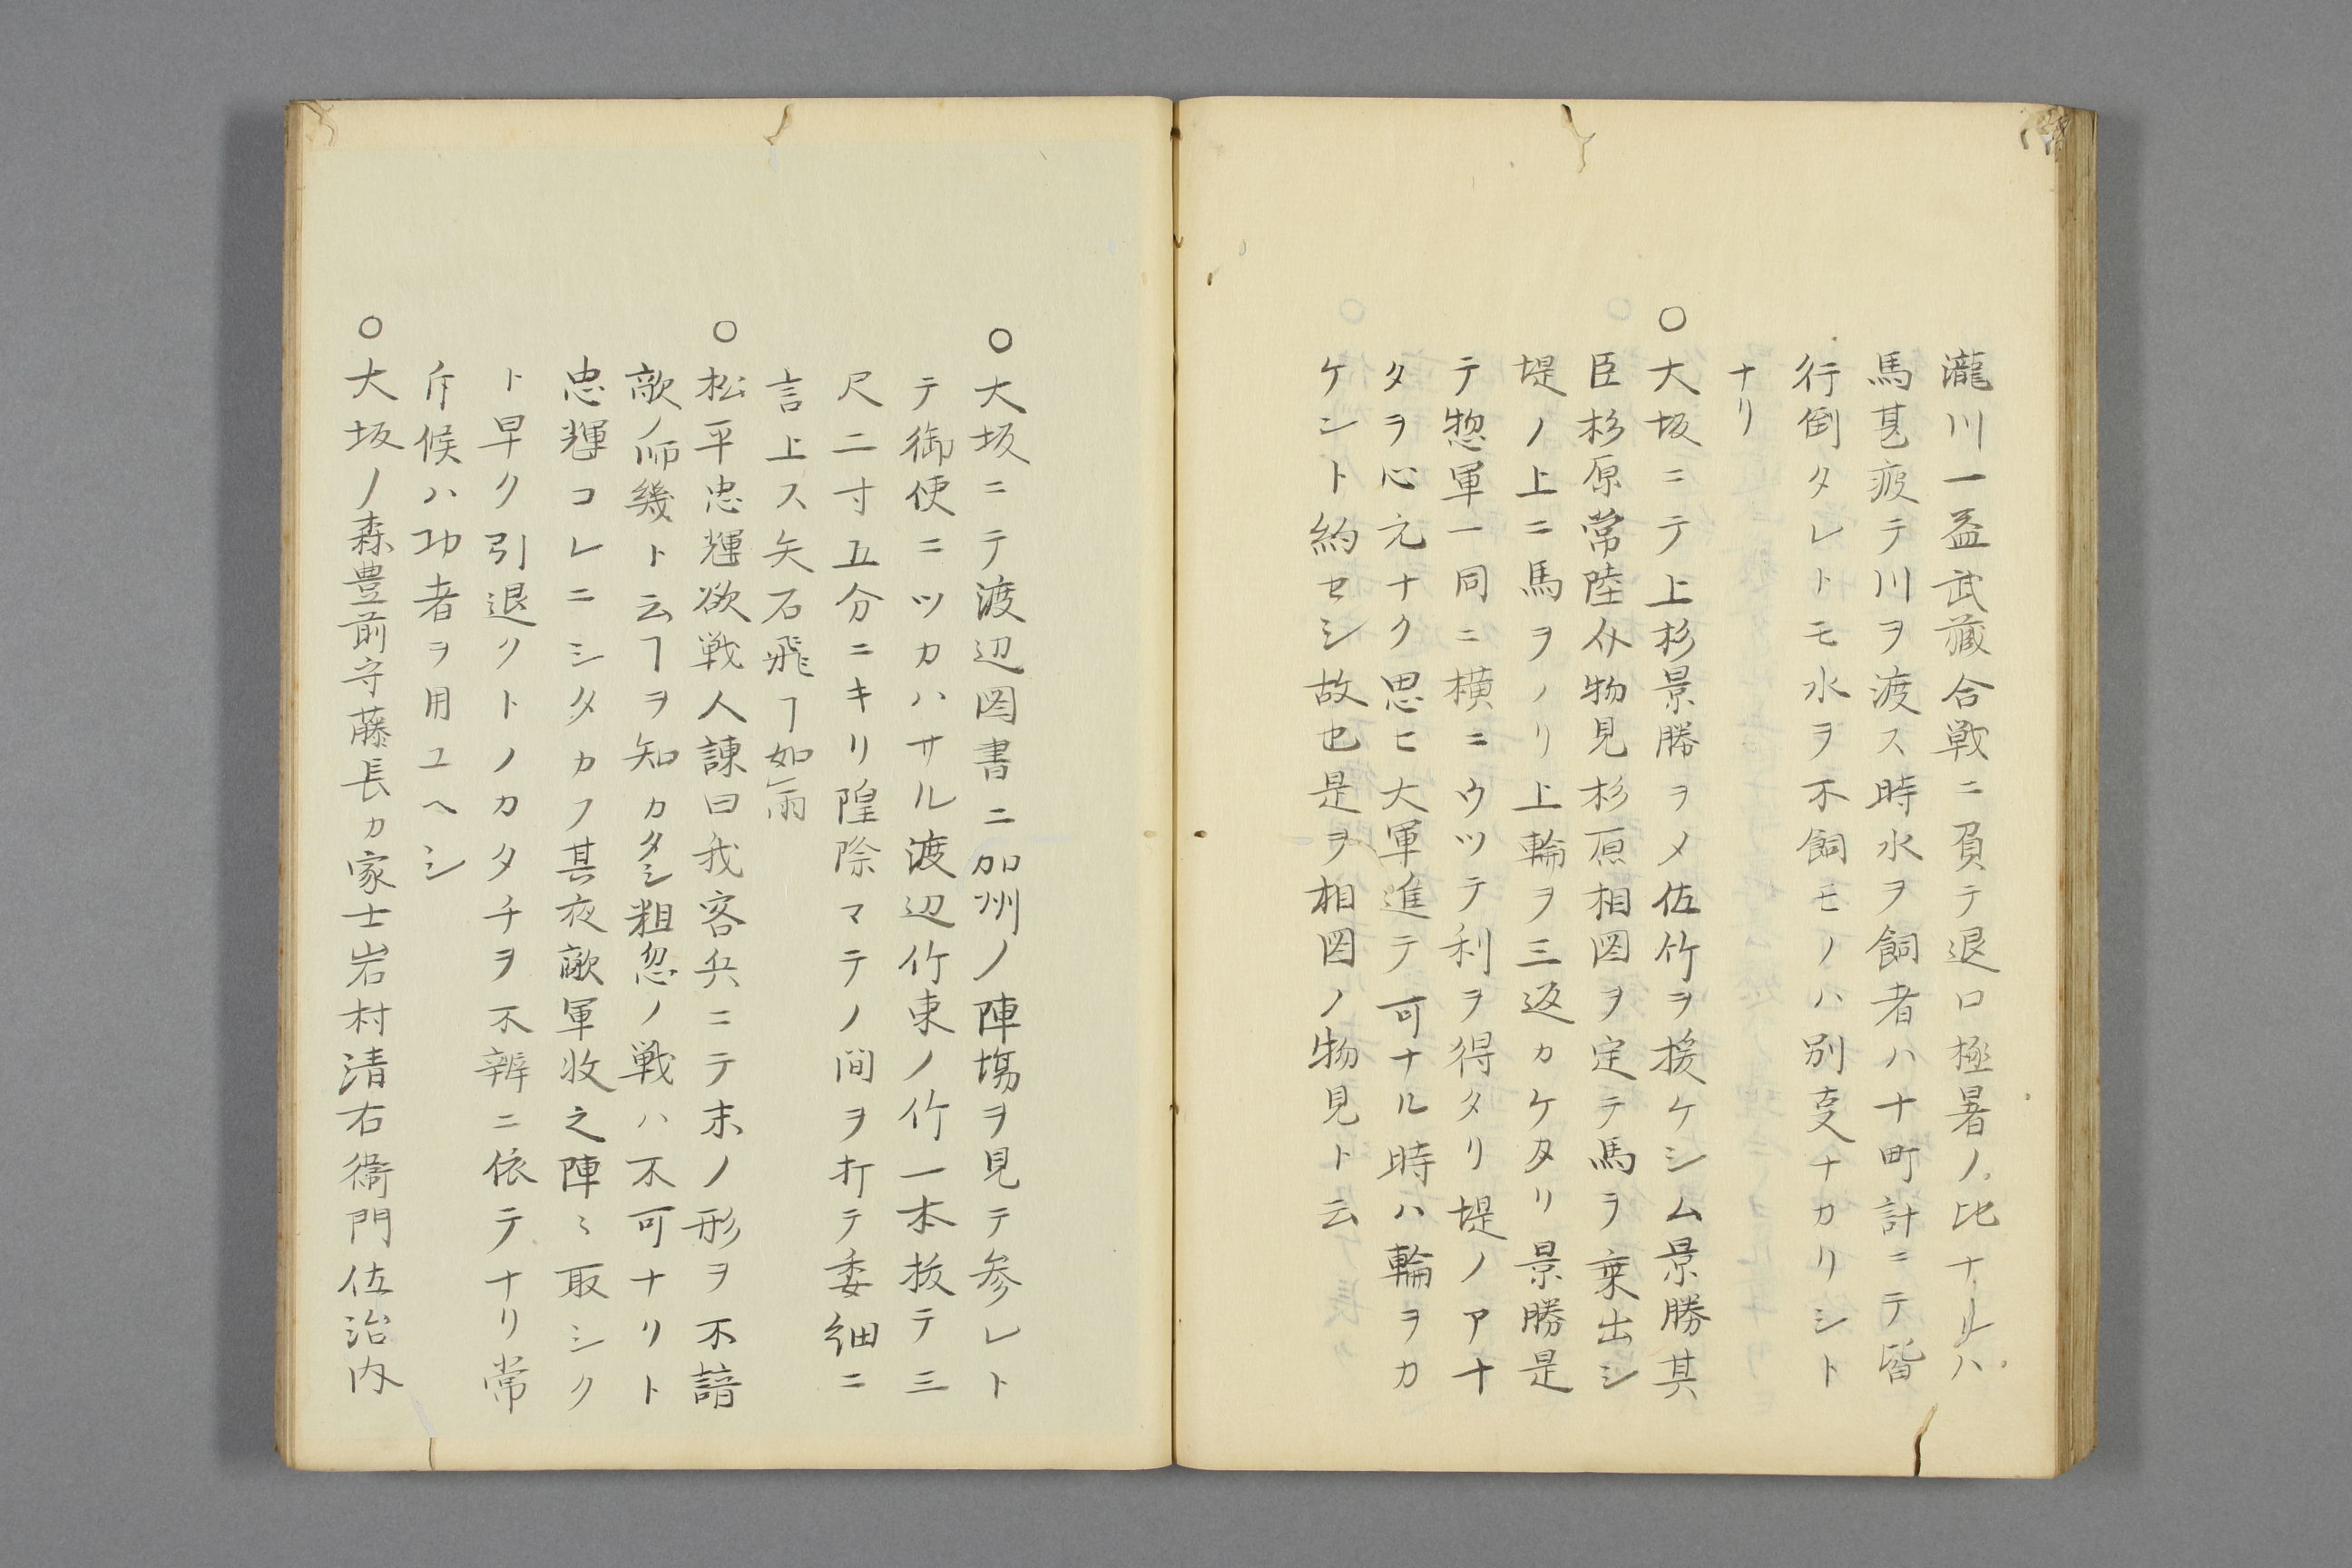 瀧川一益武藏合戰ニ負テ退口極暑ノ比ナルハ
馬甚疲テ川ヲ渡ス時水ヲ飼者ハ十町計ニテ皆
行倒タレトモ水ヲ不飼モノハ別叓ナカリシト
ナリ
○大坂ニテ上杉景勝ヲメ佐竹ヲ援ケシム景勝其
臣杉原常陸介物見杉原相図ヲ定テ馬ヲ乗出シ
堤ノ上ニ馬ヲノリ上輪ヲ三返カケタリ景勝是
テ惣軍一同ニ横ニウツテ利ヲ得タリ堤ノアナ
タヲ心元ナク思ヒ大軍進テ可ナル時ハ輪ヲカ
ケント約セシ故也是ヲ相図ノ物見ト云
○大坂ニテ渡辺図書ニ加州ノ陣場ヲ見テ参レト
テ御使ニツカハサル渡辺竹束ノ竹一本抜テ三
尺二寸五分ニキリ隍際マテノ間ヲ打テ委細ニ
言上ス矢石飛ヿ如雨
○松平忠輝欲戦人諌曰我客兵ニテ末ノ形ヲ不諳
敵ノ師幾ト云ヿヲ知カタシ粗忽ノ戦ハ不可ナリト
忠輝コレニシタカフ其夜敵軍收之陣ヽ取シク
ト早ク引退クトノカタチヲ不辨ニ依テナリ常
斥候ハ功者ヲ用ユヘシ
○大坂ノ森豊前守藤長カ家士岩村清右衞門佐治内